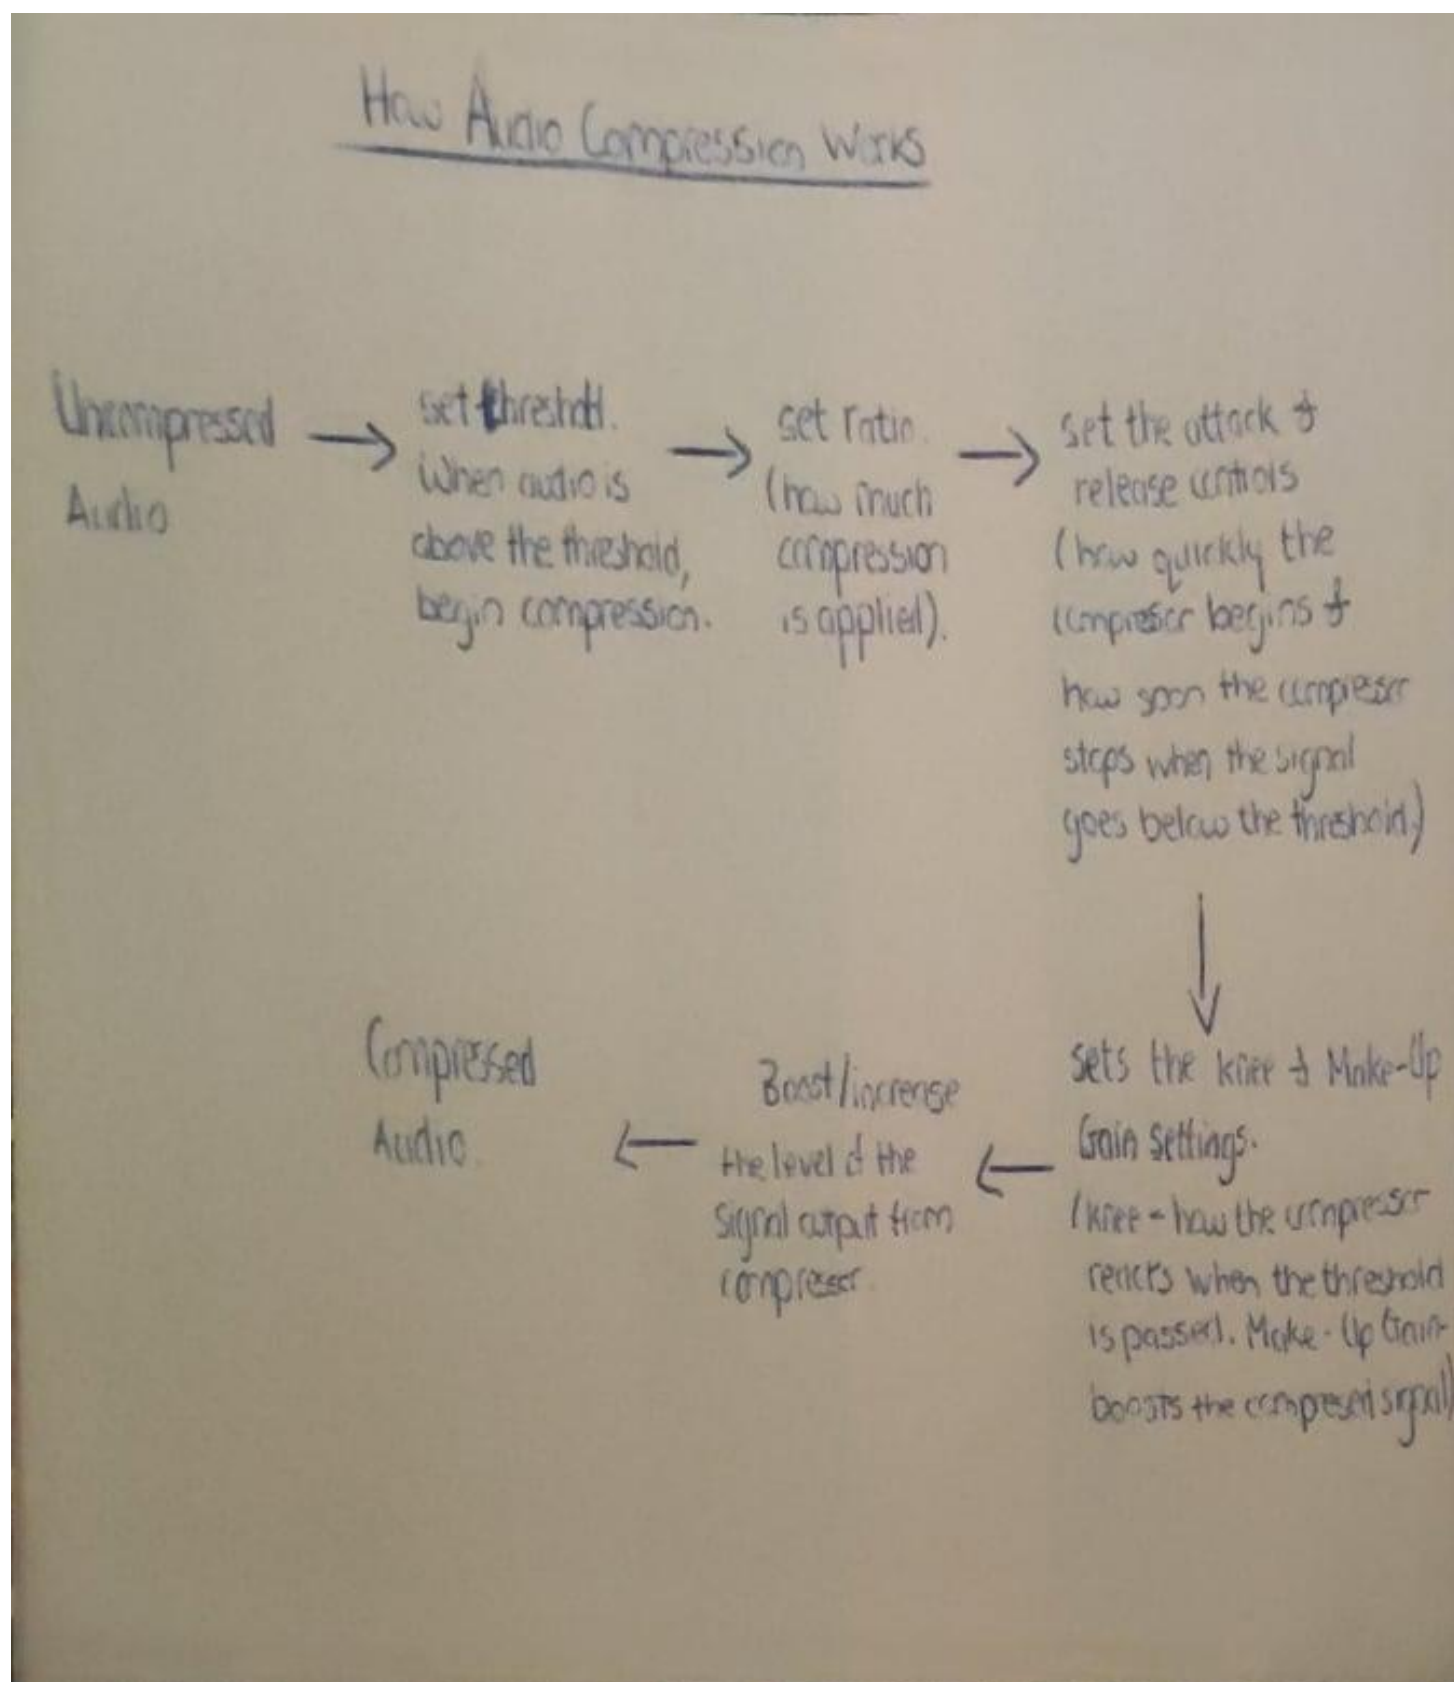 How Audio Compression Works
Uncompressed
Audio
set threshold.
When audio is
above the threshold,
begin compression.
set ratio.
(how much
compression
is applied).
set the attack &
release controls
(how quickly the
compressor begins &
how soon the compressor
stops when the signal
goes below the threshold.)
sets the knee & Make-Up
Gain settings.
(knee - how the compressor
reacts when the threshold
is passed. Make-Up Gain-
boosts the compressed signal)
Boost/increase
the level of the
signal output from
compressor.
Compressed
Audio.